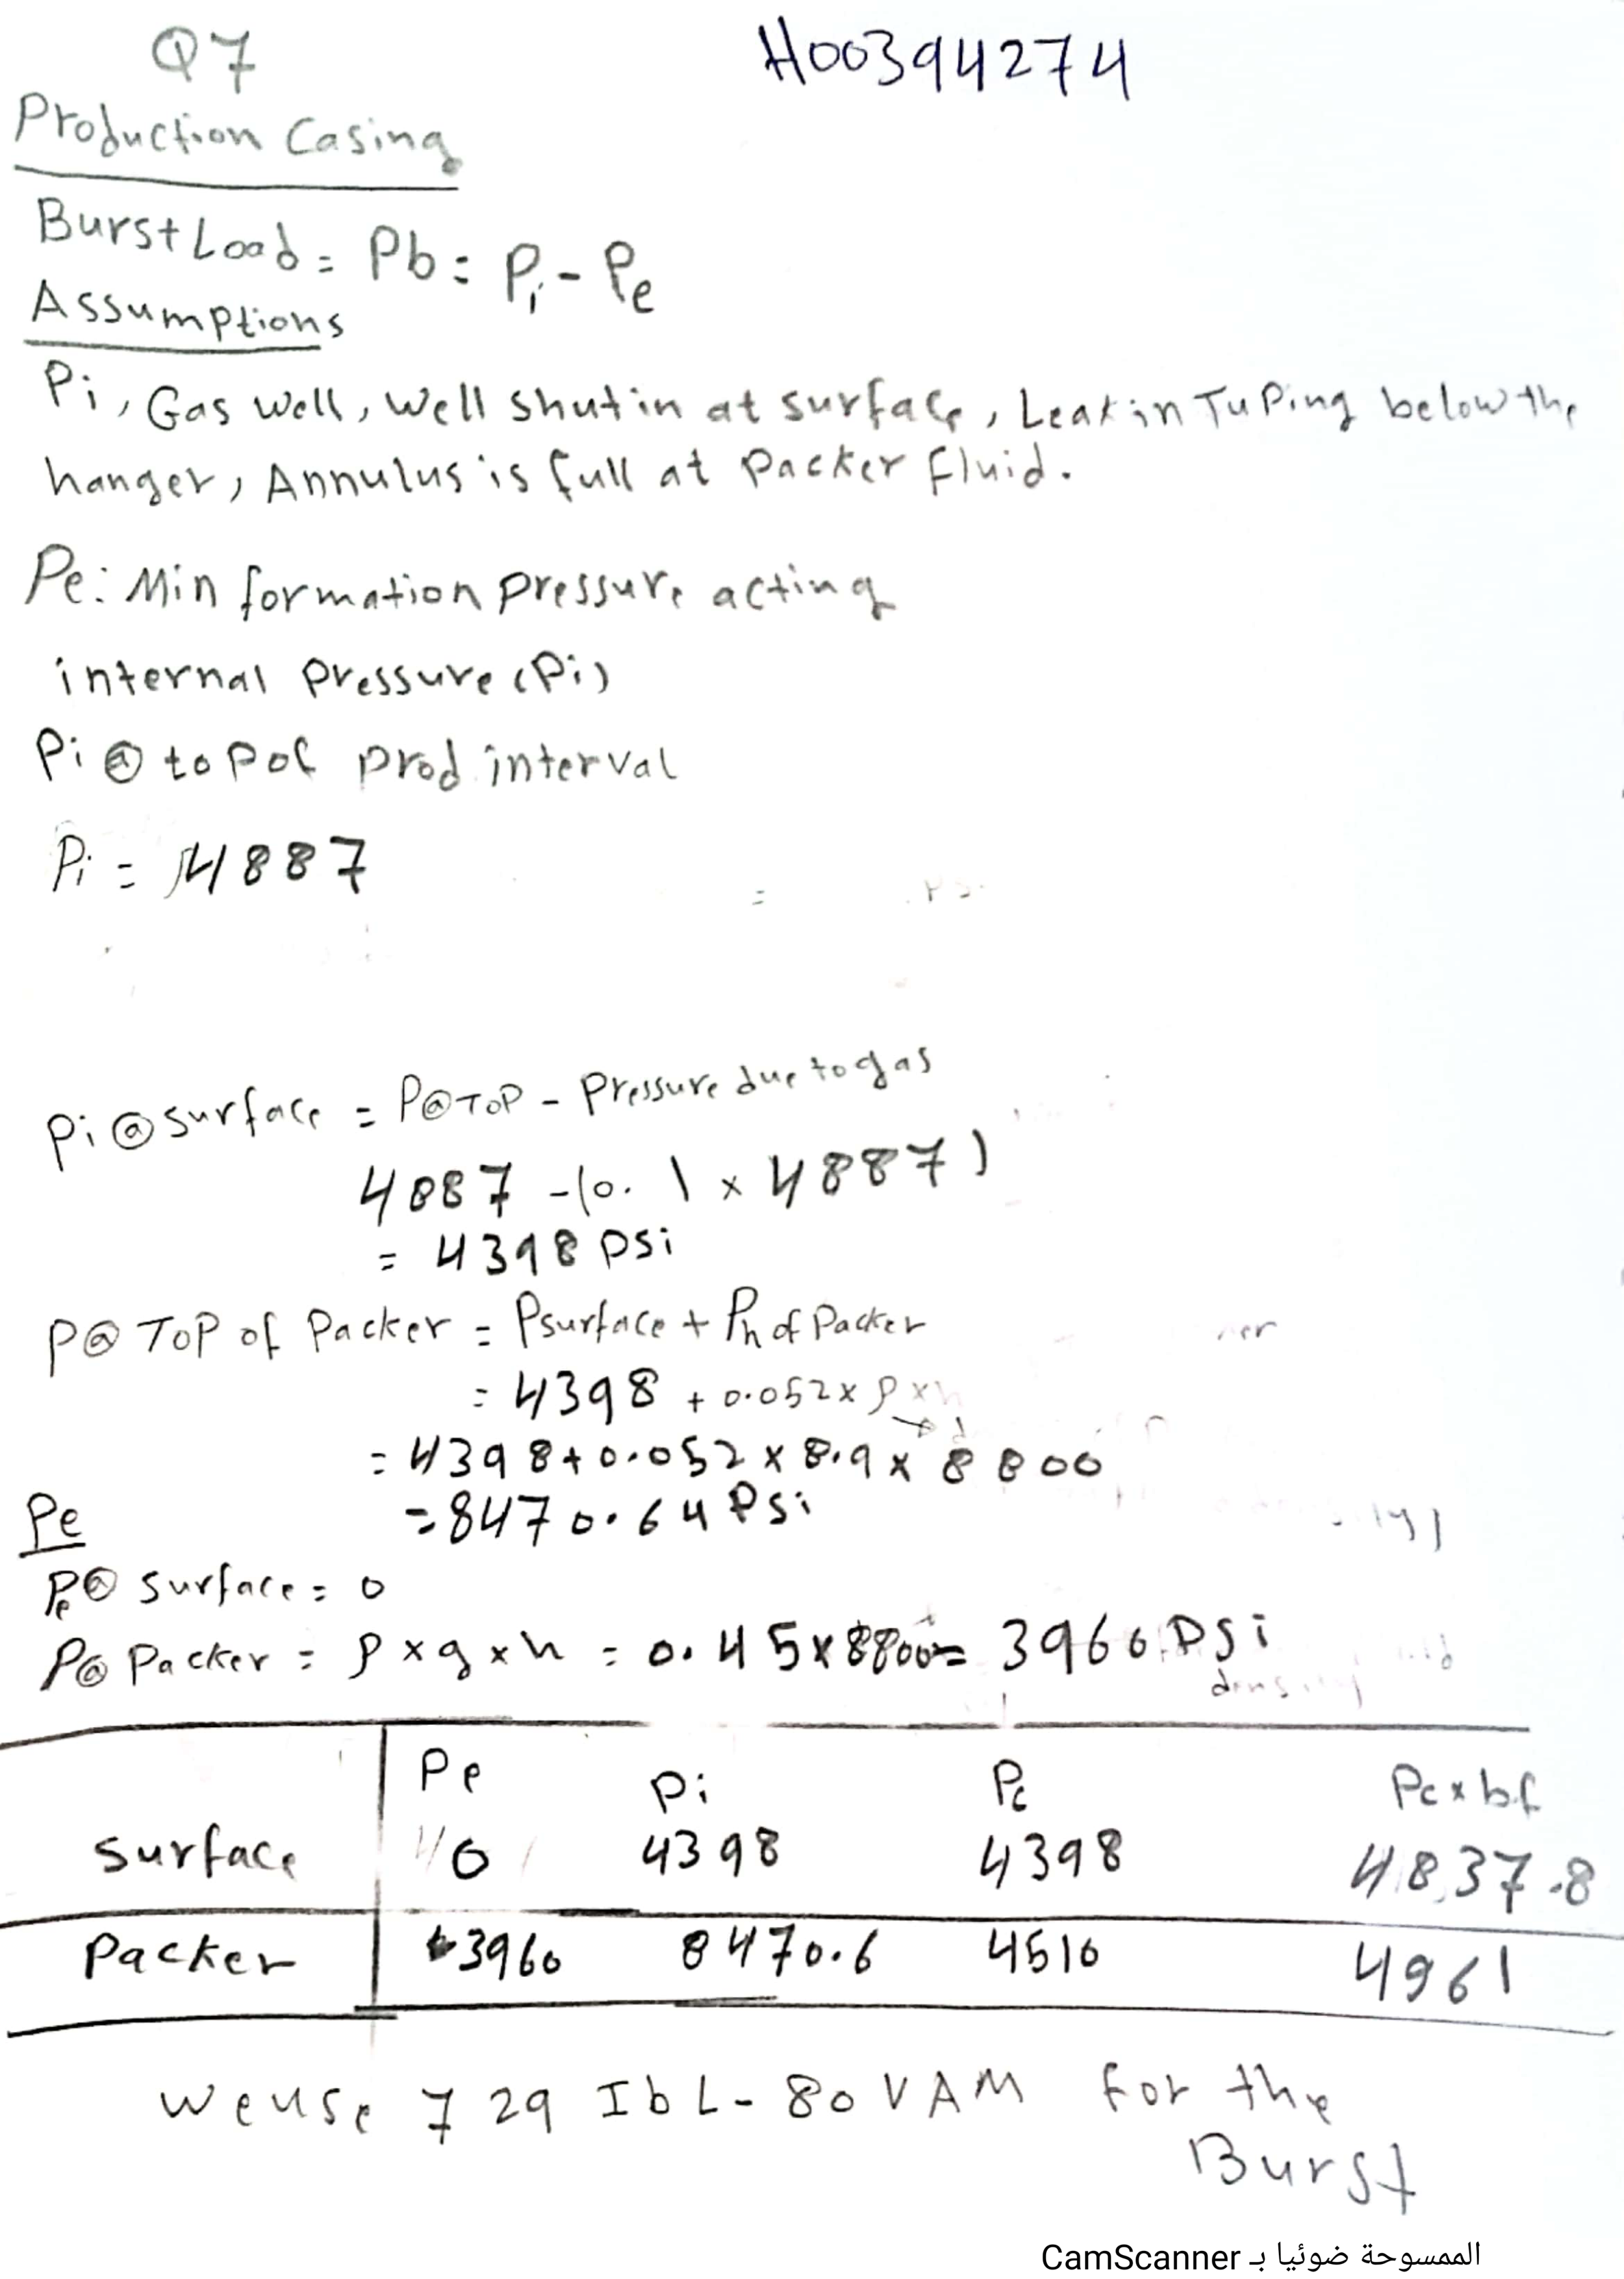 Q7
H00394274
Production Casing
Burst Load = Pb = Pi - Pe
Assumptions
Pi, Gas well, well shut in at surface, Leak in Tuping below the
hanger, Annulus is full at Packer fluid.
Pe: Min formation pressure acting
internal pressure (Pi)
Pi @ top of prod interval
Pi = 4887
Pi @ surface = P@TOP - Pressure due to gas
4887 - (0.1 x 4887)
= 4398 psi
P@ TOP of Packer = Psurface + Ph of Packer
= 4398 + 0.052 x ρ x h
= 4398 + 0.052 x 8.9 x 8800
= 8470.64 Psi
Pe
Pe@ surface = 0
P@ Packer = ρ x g x h = 0.45 x 8800 = 3960 Psi
Pe Pi Pc Pc x bf
surface 0 4398 4398 4837.8
Packer 3960 8470.6 4510 4961
We use 7 29 Ib L-80 VAM for the
Burst
الممسوحة ضوئيا بـ CamScanner